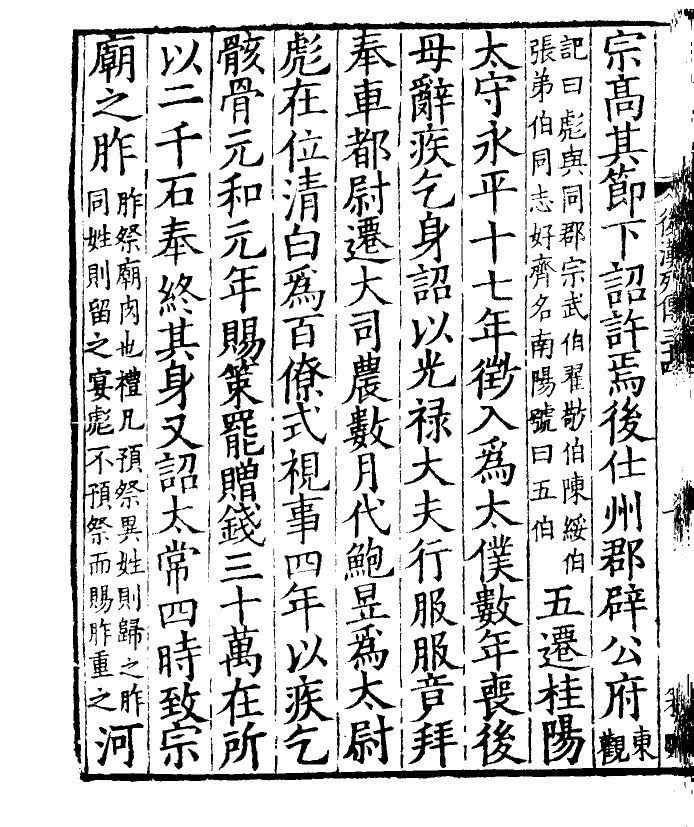 宗高其節下詔許焉後仕州郡辟公府東觀
記曰彪與同郡宗武伯翟敬伯陳綏伯
張弟伯同志好齊名南陽號曰五伯
五遷桂陽
太守永平十七年徵入爲太僕數年喪後
母辭疾乞身詔以光禄大夫行服服竟拜
奉車都尉遷大司農數月代鮑昱爲太尉
彪在位清白爲百僚式視事四年以疾乞
骸骨元和元年賜策罷贈錢三十萬在所
以二千石奉終其身又詔太常四時致宗
廟之胙
胙祭廟肉也禮凡預祭異姓則歸之胙
同姓則留之宴彪不預祭而賜胙重之
河